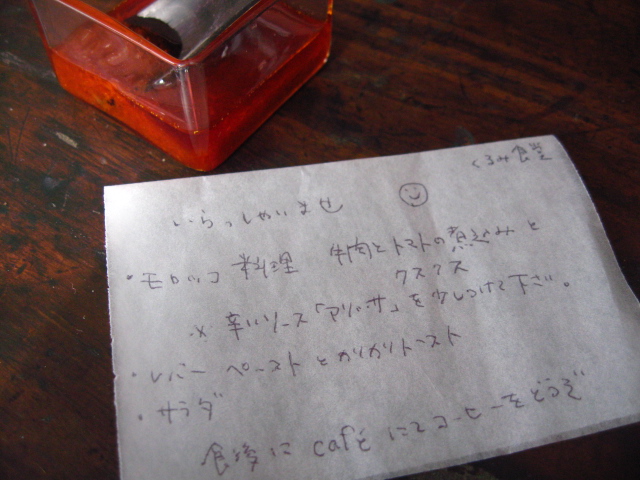 くるみ食堂
いらっしゃいませ
・モロッコ料理 牛肉とトマトの煮込みと
クスクス
※ 辛いソース「アリッサ」を少しつけて下さい。
・レバーペーストとカリカリトースト
・サラダ
食後に caféにてコーヒーをどうぞ